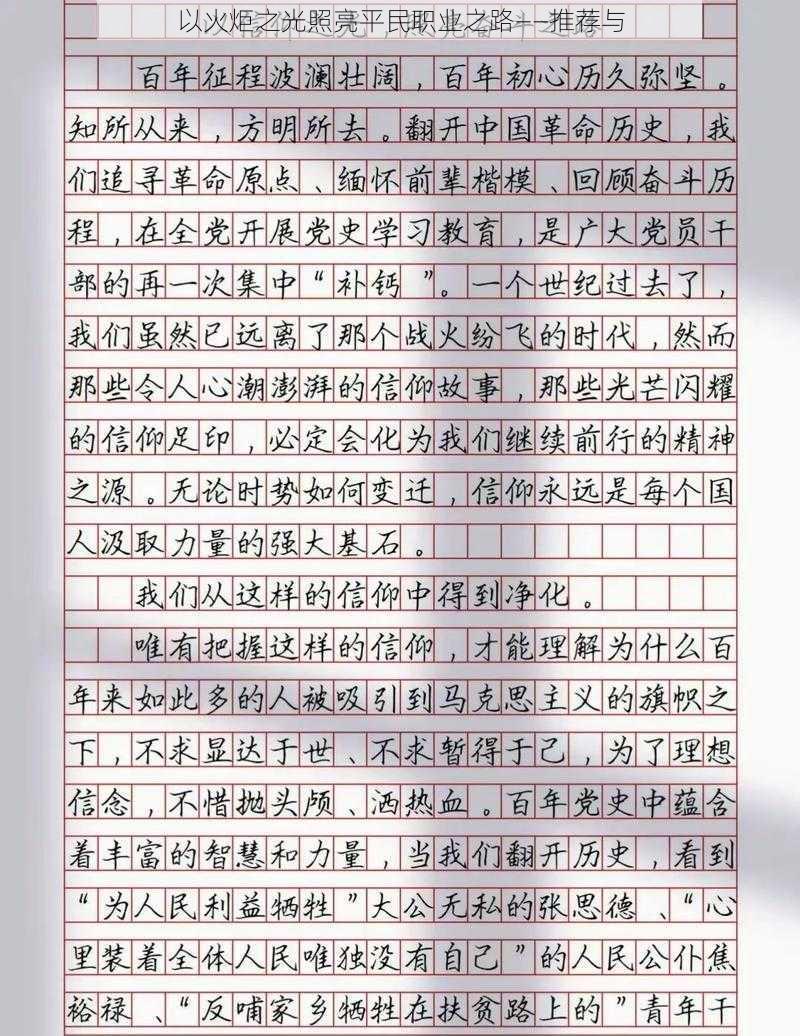 以火炬之光照亮平民职业之路——推荐与
百年征程波澜壮阔，百年初心历久弥坚。
知所从来，方明所去。翻开中国革命历史，我
们追寻革命原点、缅怀前辈楷模、回顾奋斗历
程，在全党开展党史学习教育，是广大党员干
部的再一次集中“补钙”。一个世纪过去了，
我们虽然已远离了那个战火纷飞的时代，然而
那些令人心潮澎湃的信仰故事，那些光芒闪耀
的信仰足印，必定会化为我们继续前行的精神
之源。无论时势如何变迁，信仰永远是每个国
人汲取力量的强大基石。
我们从这样的信仰中得到净化。
唯有把握这样的信仰，才能理解为什么百
年来如此多的人被吸引到马克思主义的旗帜之
下，不求显达于世、不求暂得于己，为了理想
信念，不惜抛头颅、洒热血。百年党史中蕴含
着丰富的智慧和力量，当我们翻开历史，看到
“为人民利益牺牲”大公无私的张思德、“心
里装着全体人民唯独没有自己”的人民公仆焦
裕禄、“反哺家乡牺牲在扶贫路上的”青年干